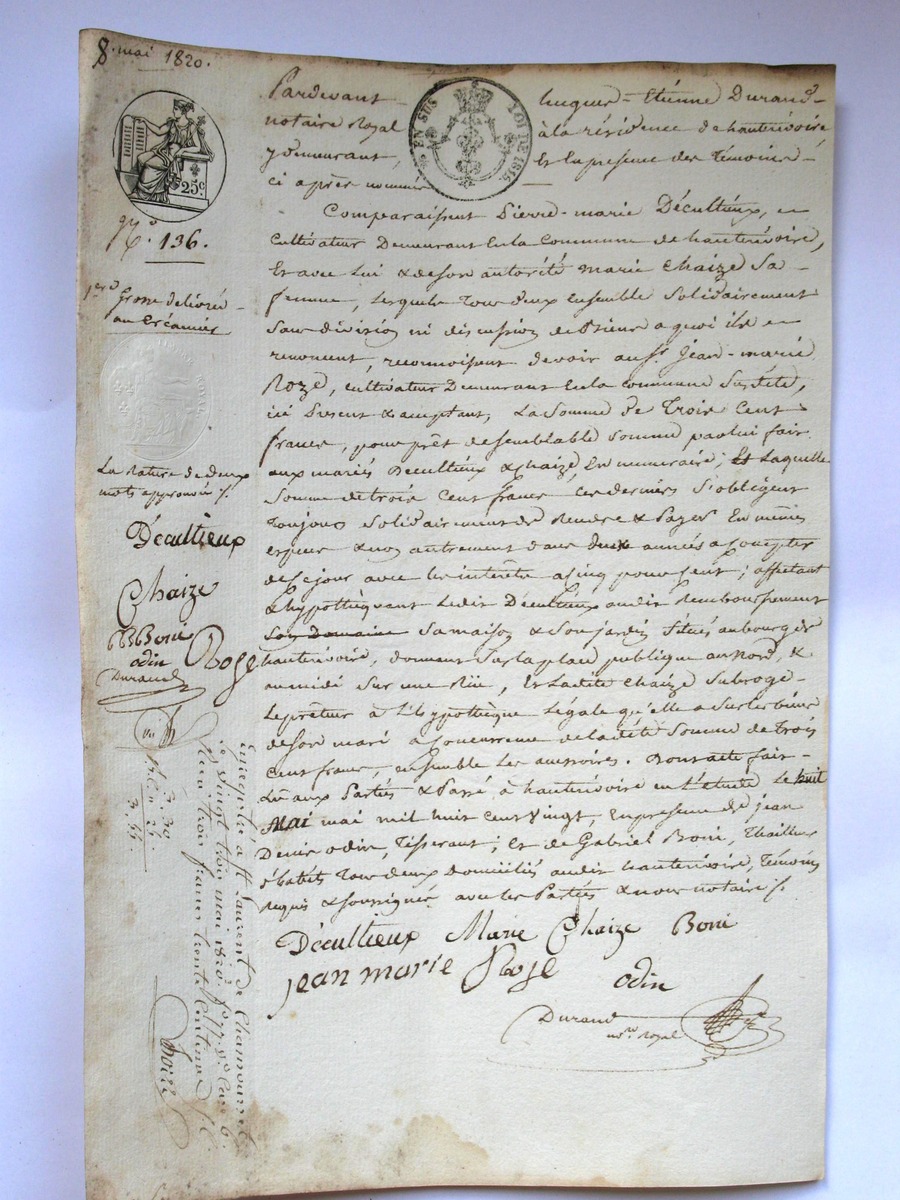 8. mai 1820.
25c
EN SUS LOI DE 1816.
N.º 136.
1ere Grosse délivrée
au Créancier
La rature de deux
mots approuvée /.
Décultieux
Chaize
Boni
odin Roze
Durand
Pardevant hugues-Etienne Durand
notaire Royal à la résidence de hauterivoire
y demeurant, Et En presence des Témoins
ci après nommés
Comparaissent Pierre-marie Décultieux,
cultivateur Demeurant En la Commune de hauterivoire,
Et avec Lui & de son autorité marie Chaize Sa
femme, Lesquels Tous deux Ensemble Solidairement
Sans division ni discussion de Biens a quoi ils
renoncent, reconnoissent devoir au Sr. Jean-marie
Roze, cultivateur Demeurant En la commune Susdite,
ici Présent & acceptant, La Somme de Trois Cent
francs, pour prêt de semblable Somme par lui fait
aux mariés Décultieux & Chaize, En numeraire; Et Laquelle
Somme de trois Cent francs ces derniers S'obligent
Toujours Solidairement de Rendre & Payer En mêmes
especes & non autrement dans deux années a compter
de ce jour avec les interêts a cinq pour cent; affectant
& hypothéquant Ledit Décultieux audit Remboursement
Son Domaine Sa maison & Son jardin Situés au bourg de
hauterivoire, donnant Sur la place publique au Nord, &
au midi Sur une Rüe, Et Ladite Chaize Subroge
Le prêteur à L'hypothèque Légale qu'elle a Sur les biens
de Son mari a concurrence de ladite Somme de Trois
Cent francs, ensemble Les accessoires. Dont acte fait
Lû aux Parties & Passé à hauterivoire en L'étude Le huit
Mai mai mil huit cent vingt En presence de jean
Denis odin, Tisserant; Et de Gabriel Boni, Thailleur
d'habits Tous deux domiciliés audit hauterivoire, Témoins
requis & soussignés avec les Parties & nous notaire /.
Décultieux Marie Chaize Boni
jean marie Roze odin
Durand
nore Royal
Enregistré a St Laurent de Chamousset
le vingt trois mai 1820.
Reçu trois francs trente Centimes
3. 30
3. 55